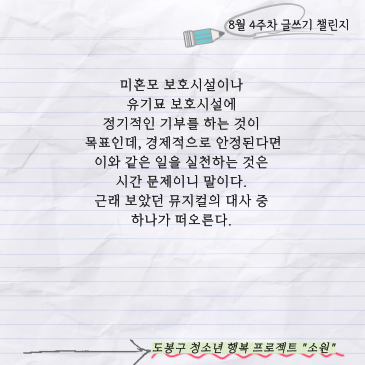 8월 4주차 글쓰기 챌린지
미혼모 보호시설이나
유기묘 보호시설에
정기적인 기부를 하는 것이
목표인데, 경제적으로 안정된다면
이와 같은 일을 실천하는 것은
시간 문제이니 말이다.
근래 보았던 뮤지컬의 대사 중
하나가 떠오른다.
도봉구 청소년 행복 프로젝트 "소원"